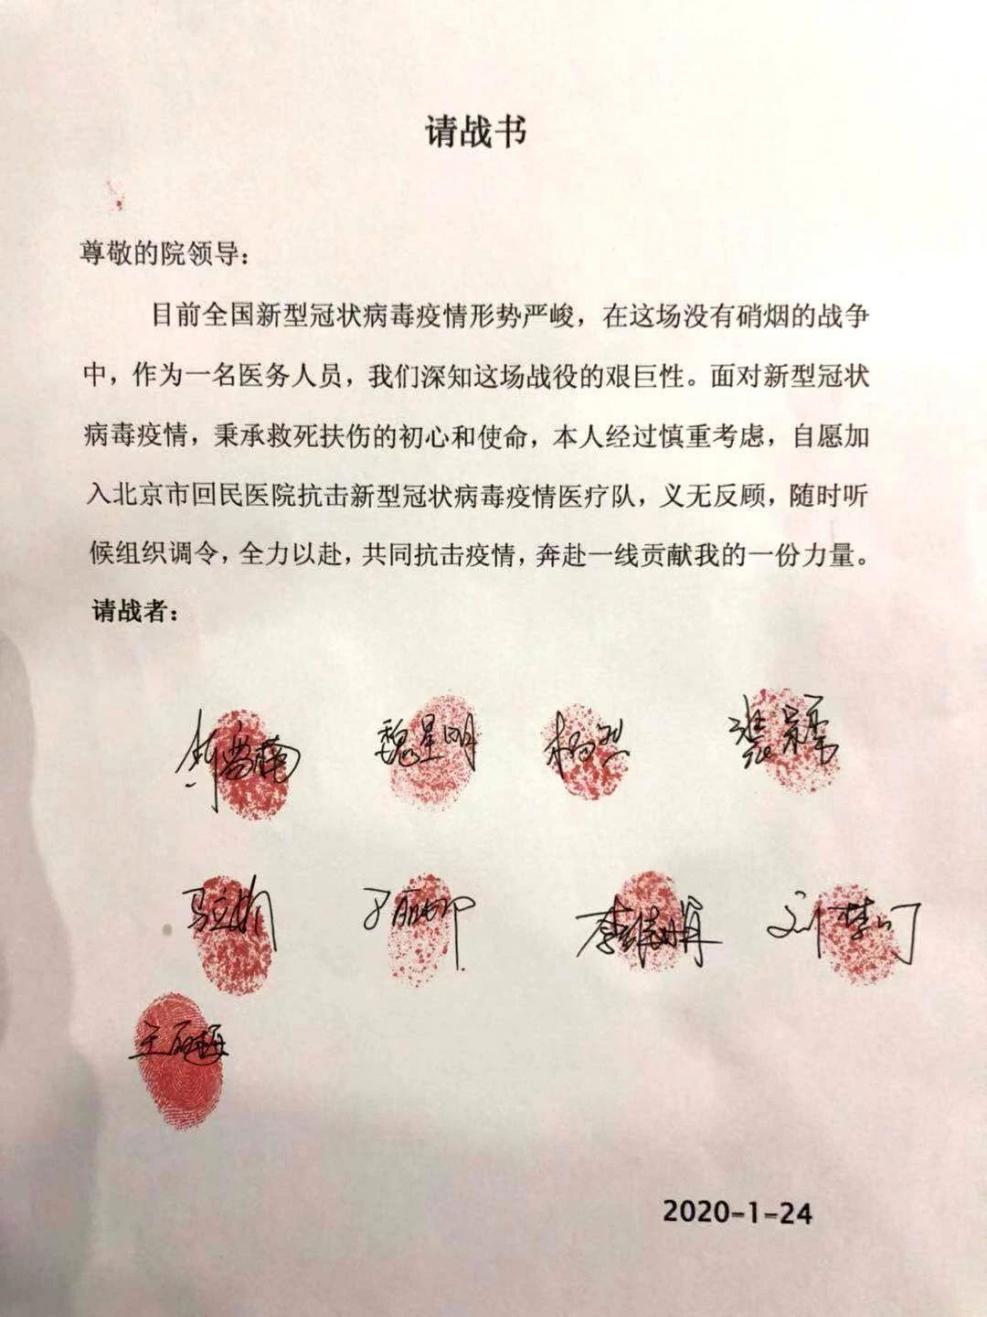 请战书
尊敬的院领导：
目前全国新型冠状病毒疫情形势严峻，在这场没有硝烟的战争
中，作为一名医务人员，我们深知这场战役的艰巨性。面对新型冠状
病毒疫情，秉承救死扶伤的初心和使命，本人经过慎重考虑，自愿加
入北京市回民医院抗击新型冠状病毒疫情医疗队，义无反顾，随时听
候组织调令，全力以赴，共同抗击疫情，奔赴一线贡献我的一份力量。
请战者：
魏星明
2020-1-24